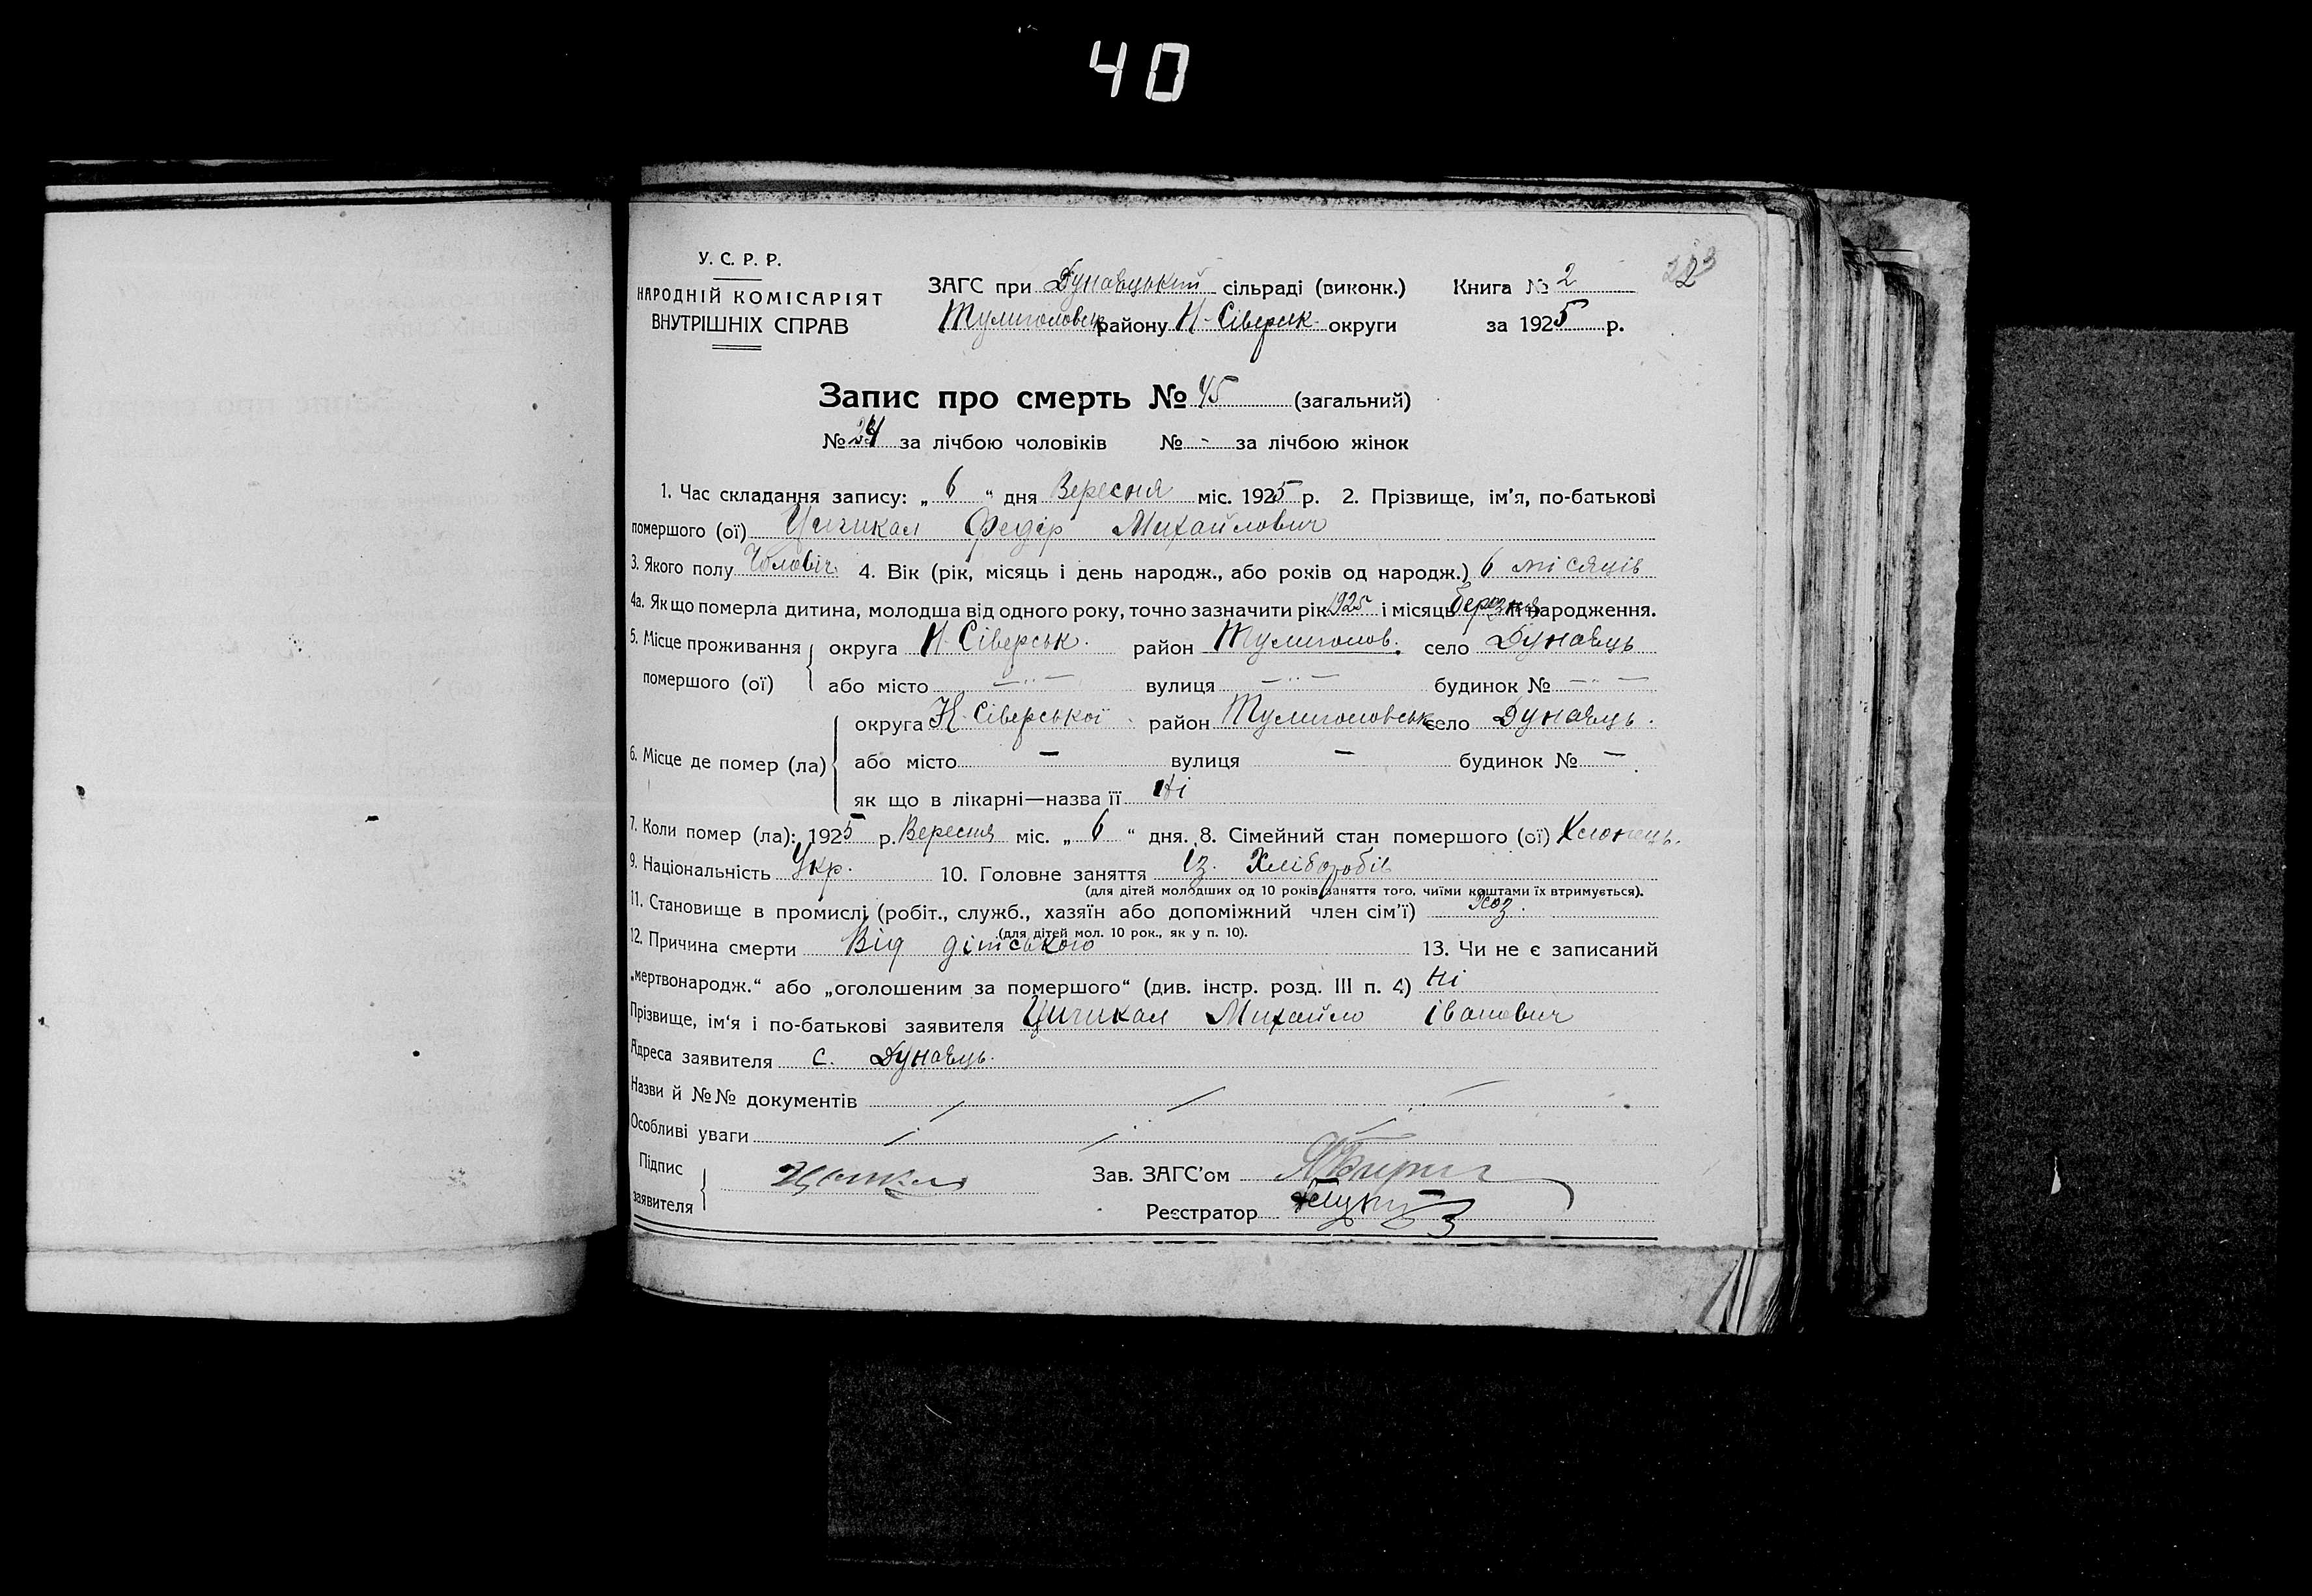 40
У. С. Р. Р.
НАРОДНІЙ КОМІСАРІЯТ
ВНУТРІШНІХ СПРАВ
ЗАГС при Дунаецький сільраді (виконк.)
Тулиголовськ району Н-Сіверськ округи
Книга № 2
за 1925 р.
223
Запис про смерть № 45 (загальний)
№ 24 за лічбою чоловіків № - за лічбою жінок
1. Час складання запису: „ 6 “ дня Вересня міс. 1925 р. 2. Прізвище, ім'я, по-батькові
помершого (ої) Цигикал Федір Михайлович
3. Якого полу Чоловіч. 4. Вік (рік, місяць і день народж., або років од народж.) 6 місяців
4а. Якщо померла дитина, молодша від одного року, точно зазначити рік 1925 і місяць березня її народження.
5. Місце проживання помершого (ої) округа Н-Сіверськ. район Тулиголов. село Дунаець
або місто — „ — вулиця — „ — будинок № — „ —
6. Місце де помер (ла) округа Н-Сіверської район Тулиголовськ село Дунаець.
або місто — вулиця — будинок № —
як що в лікарні—назва її Ні
7. Коли помер (ла): 1925 р. Вересня міс. „ 6 “ дня. 8. Сімейний стан помершого (ої) Хлопець.
9. Національність Укр. 10. Головне заняття Із Хліборобів
(для дітей молодших од 10 років заняття того, чиїми коштами їх втримується).
11. Становище в промислі (робіт., служб., хазяїн або допоміжний член сім'ї) Хоз.
(для дітей мол. 10 рок., як у п. 10).
12. Причина смерти Від дітського 13. Чи не є записаний
„мертвонародж.“ або „оголошеним за помершого“ (див. інстр. розд. III п. 4) Ні
Прізвище, ім'я і по-батькові заявителя Цигикал Михайло Іванович
Адреса заявителя с. Дунаець.
Назви й №№ документів
Особливі уваги
Підпис заявителя
Зав. ЗАГС'ом
Реєстратор